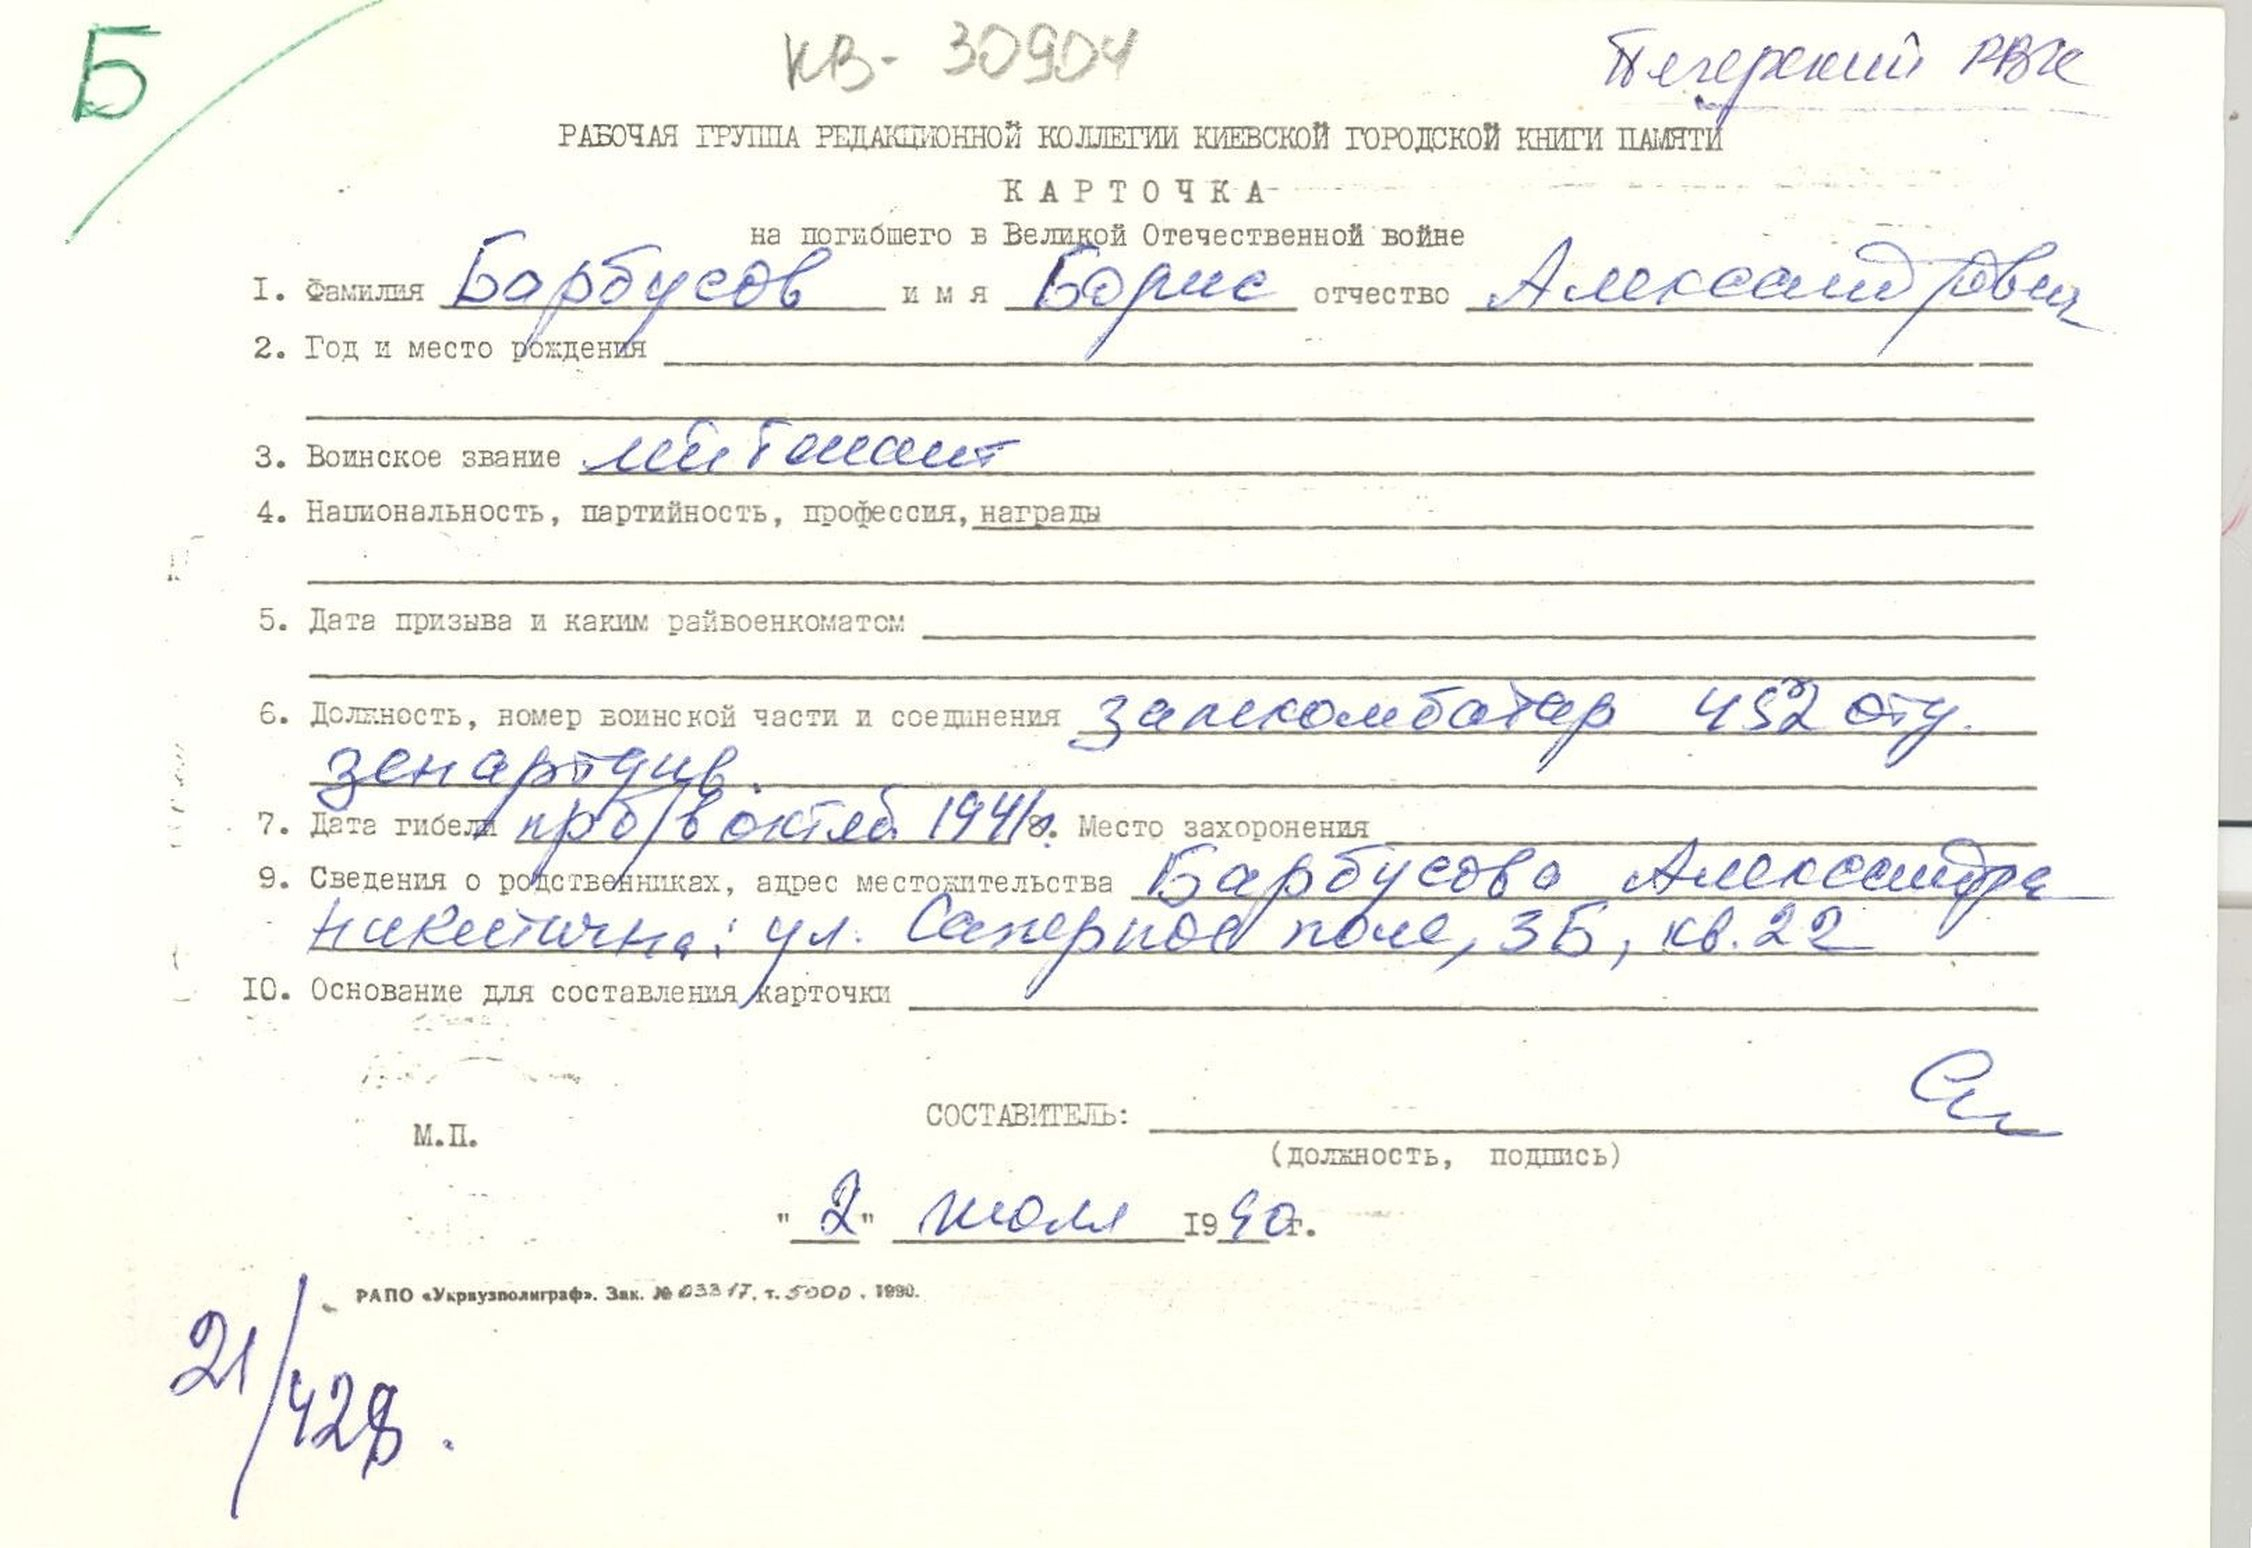 Б
КВ- 30904
Печерский РВК
РАБОЧАЯ ГРУППА РЕДАКЦИОННОЙ КОЛЛЕГИИ КИЕВСКОЙ ГОРОДСКОЙ КНИГИ ПАМЯТИ
КАРТОЧКА
на погибшего в Великой Отечественной войне
I. Фамилия Барбусов имя Борис отчество Александрович
2. Год и место рождения
3. Воинское звание лейтенант
4. Национальность, партийность, профессия, награды
5. Дата призыва и каким райвоенкоматом
6. Должность, номер воинской части и соединения замкомбатар 452 отд.
зенартдив.
7. Дата гибели проп/в октяб. 1941г. 8. Место захоронения
9. Сведения о родственниках, адрес местожительства Барбусова Александра
Никитична: ул. Саперное поле, 3Б, кв. 22
IO. Основание для составления карточки
СОСТАВИТЕЛЬ:
М.П.
(должность, подпись)
"2" июля 1990г.
РАПО «Укрвузполиграф». Зак. № 03317, т. 5000. 1990.
21/428.